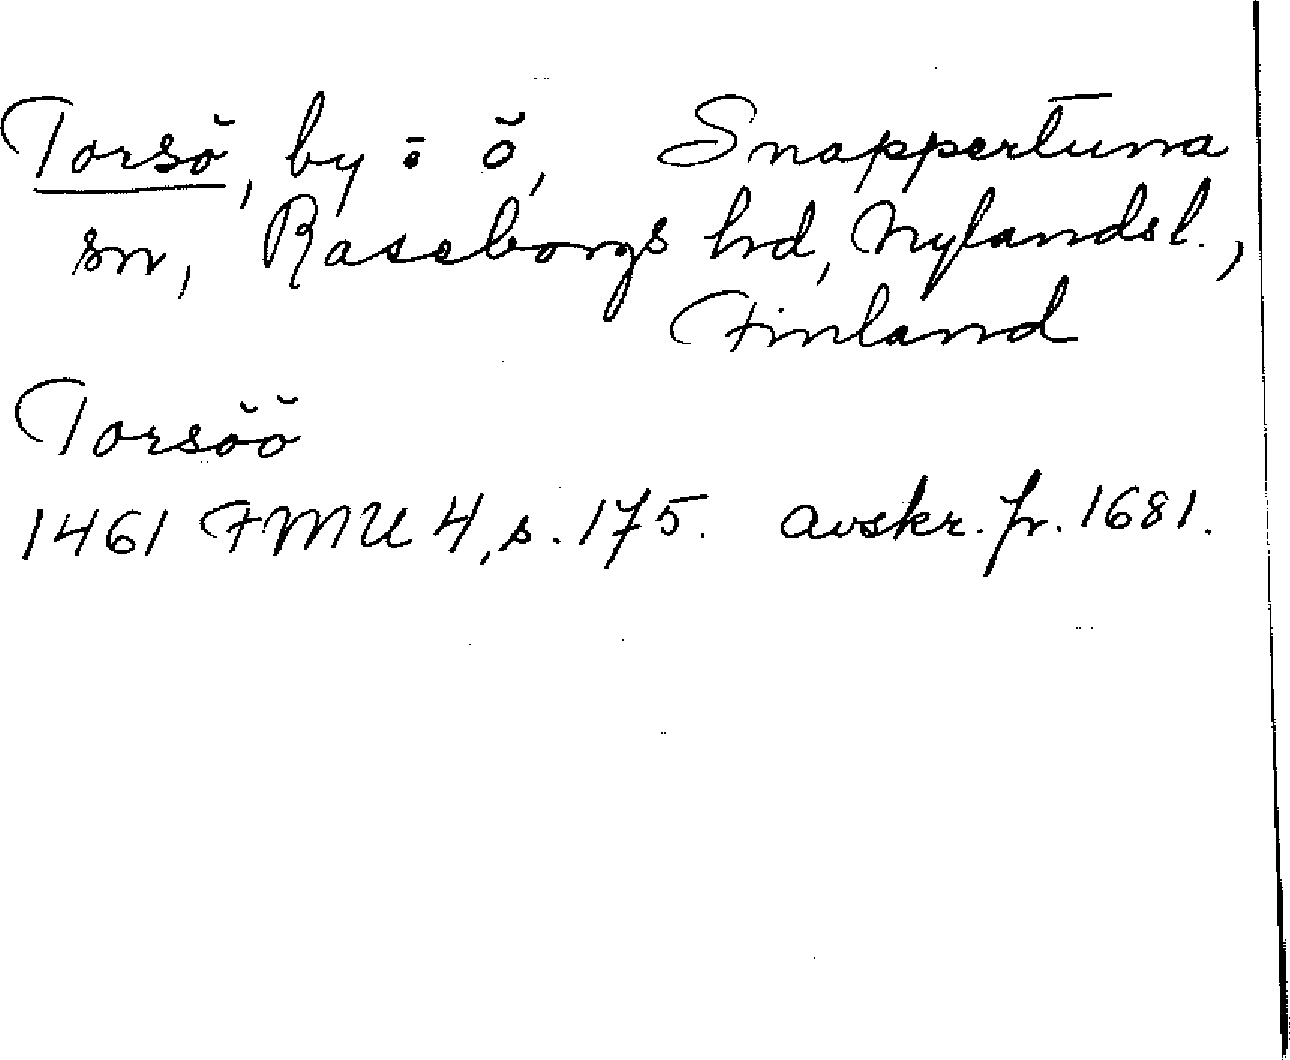 Torsö, by : ö, Snappertuna
sn, Raseborgs hrd, Nylands l.,
Finland
Torsöö
1461 FMU 4, s. 175. avskr. fr. 1681.